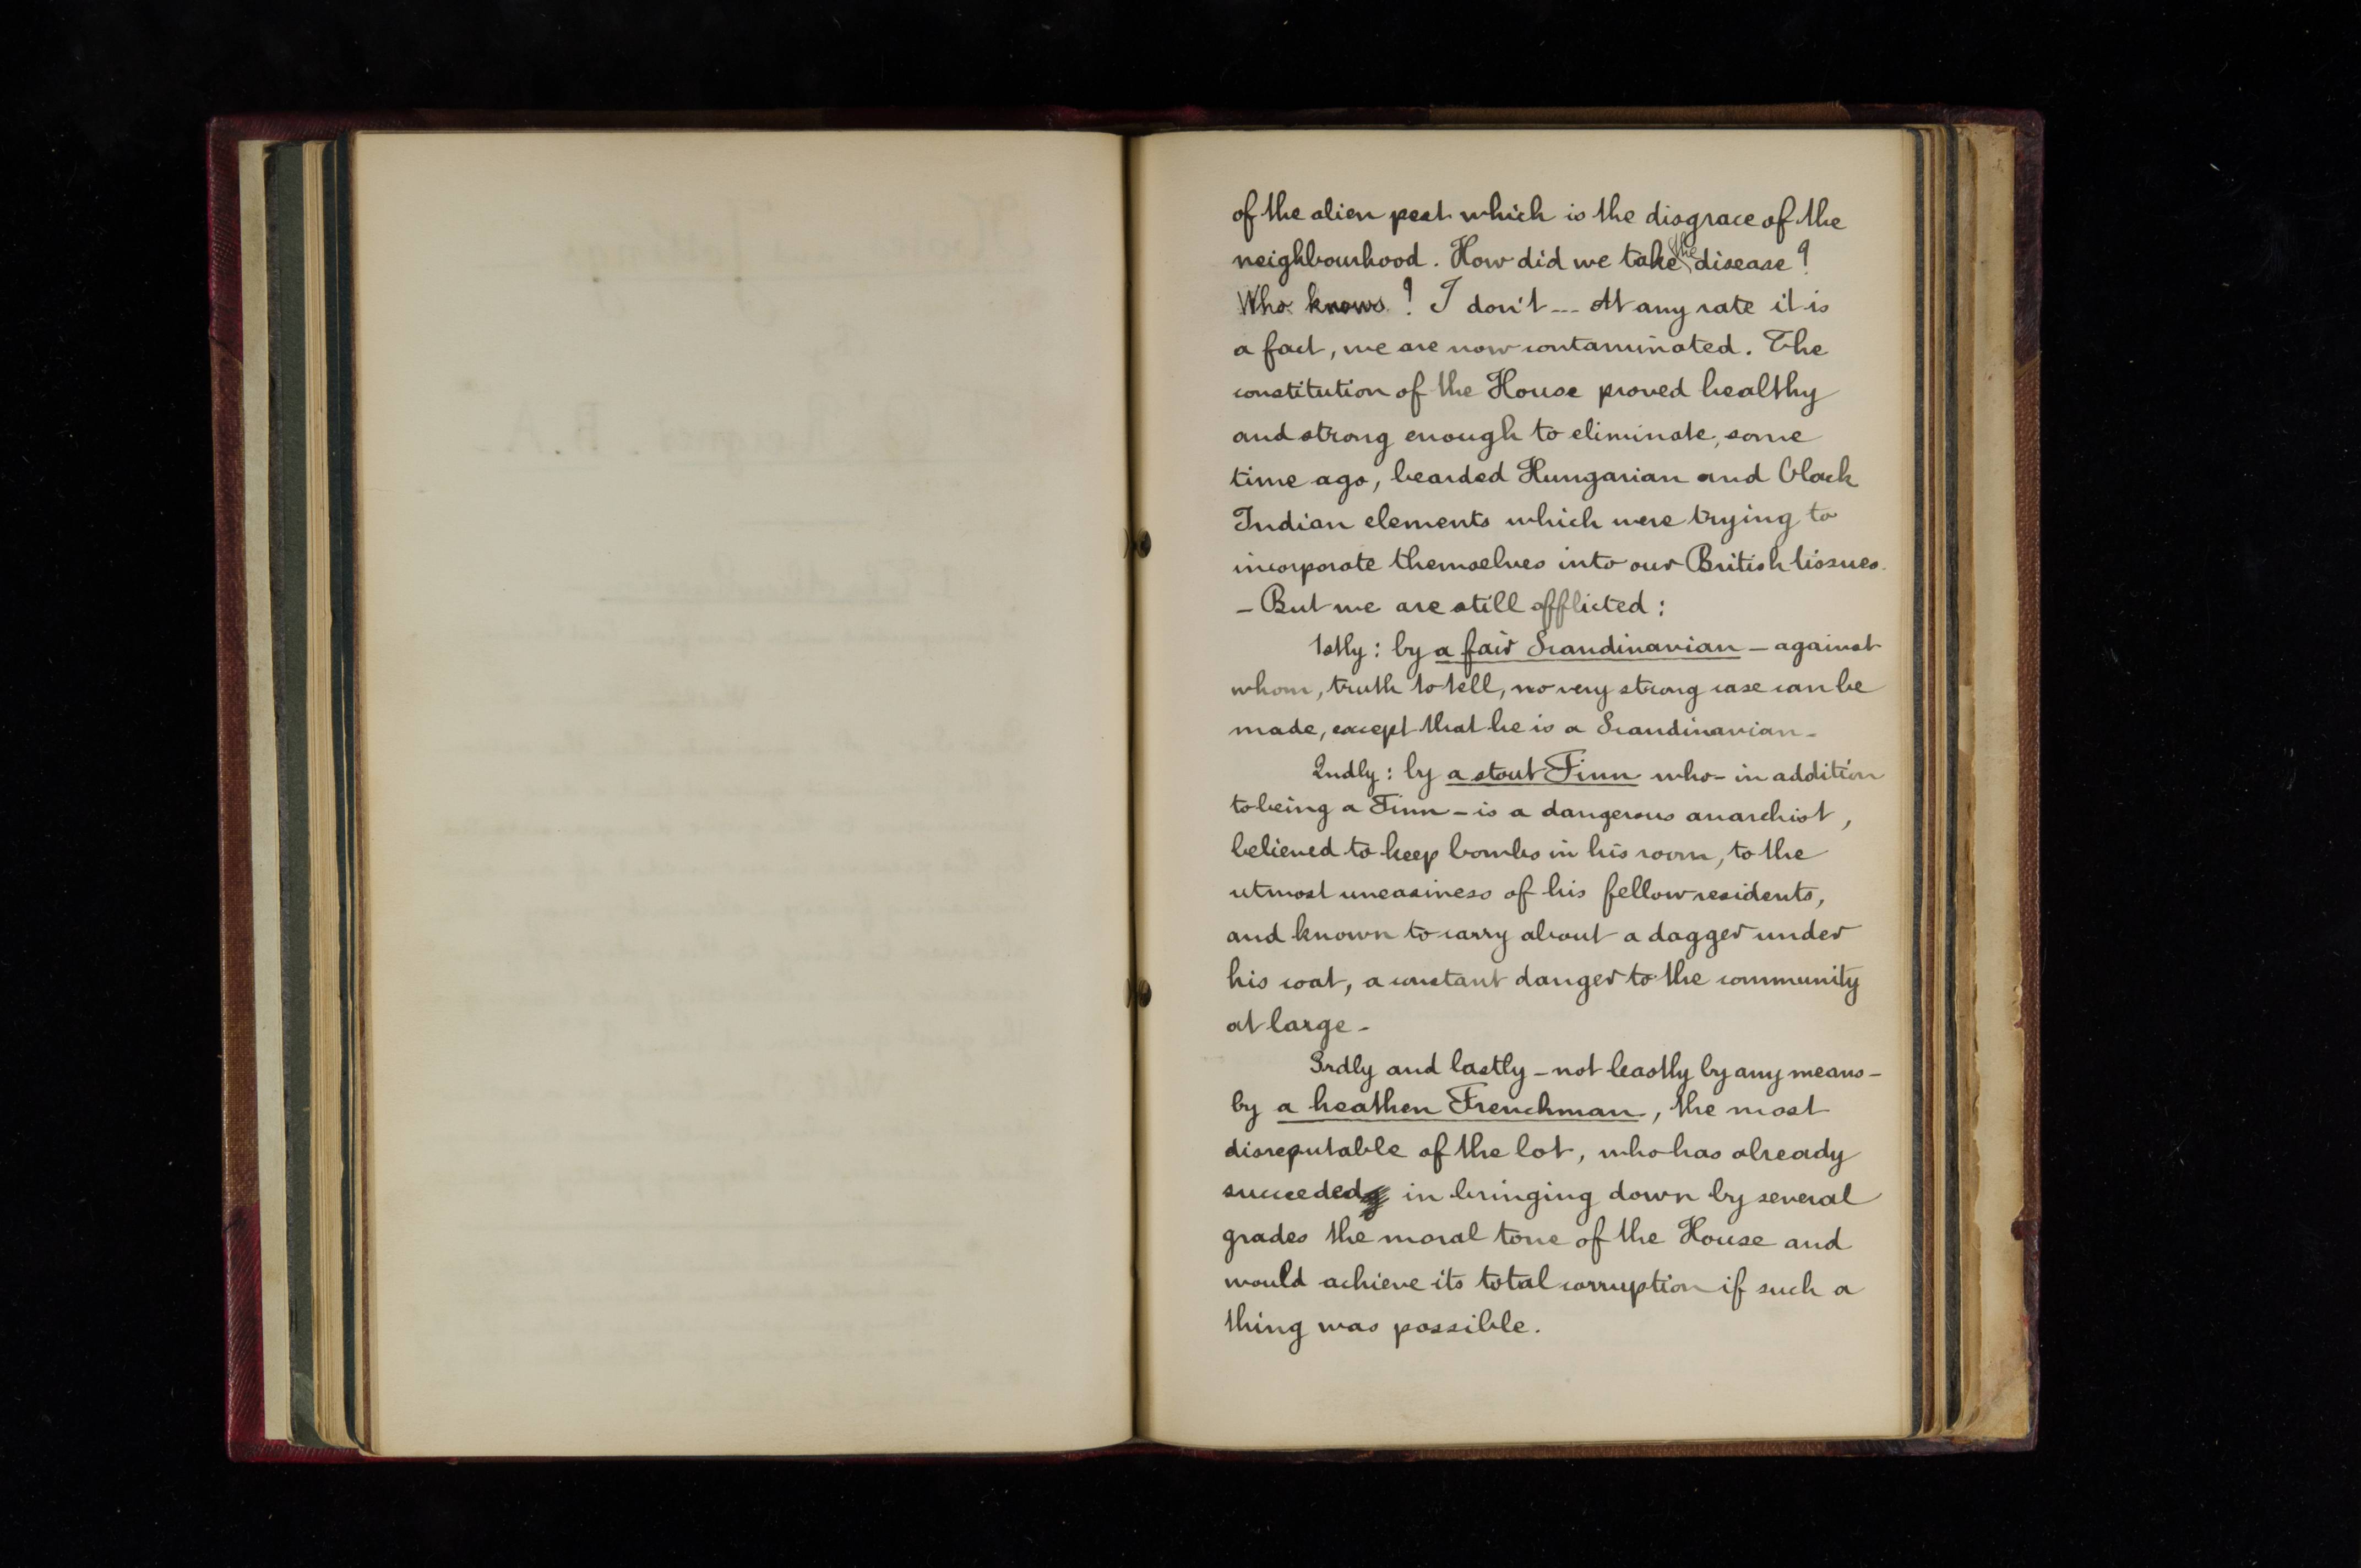 of the alien pest which is the disgrace of the
neighbourhood. How did we take the disease?
Who knows? I don't --- At any rate it is
a fact, we are now contaminated. The
constitution of the House proved healthy
and strong enough to eliminate, some
time ago, bearded Hungarian and black
Indian elements which were trying to
incorporate themselves into our British tissues.
- But we are still afflicted:
1stly: by a fair Scandinavian - against
whom, truth to tell, no very strong case can be
made, except that he is a Scandinavian -
2ndly: by a stout Finn who - in addition
to being a Finn - is a dangerous anarchist,
believed to keep bombs in his room, to the
utmost uneasiness of his fellow residents,
and known to carry about a dagger under
his coat, a constant danger to the community
at large -
3rdly and lastly - not leastly by any means -
by a heathen Frenchman, the most
disreputable of the lot, who has already
succeeded in bringing down by several
grades the moral tone of the House and
would achieve its total corruption if such a
thing was possible.